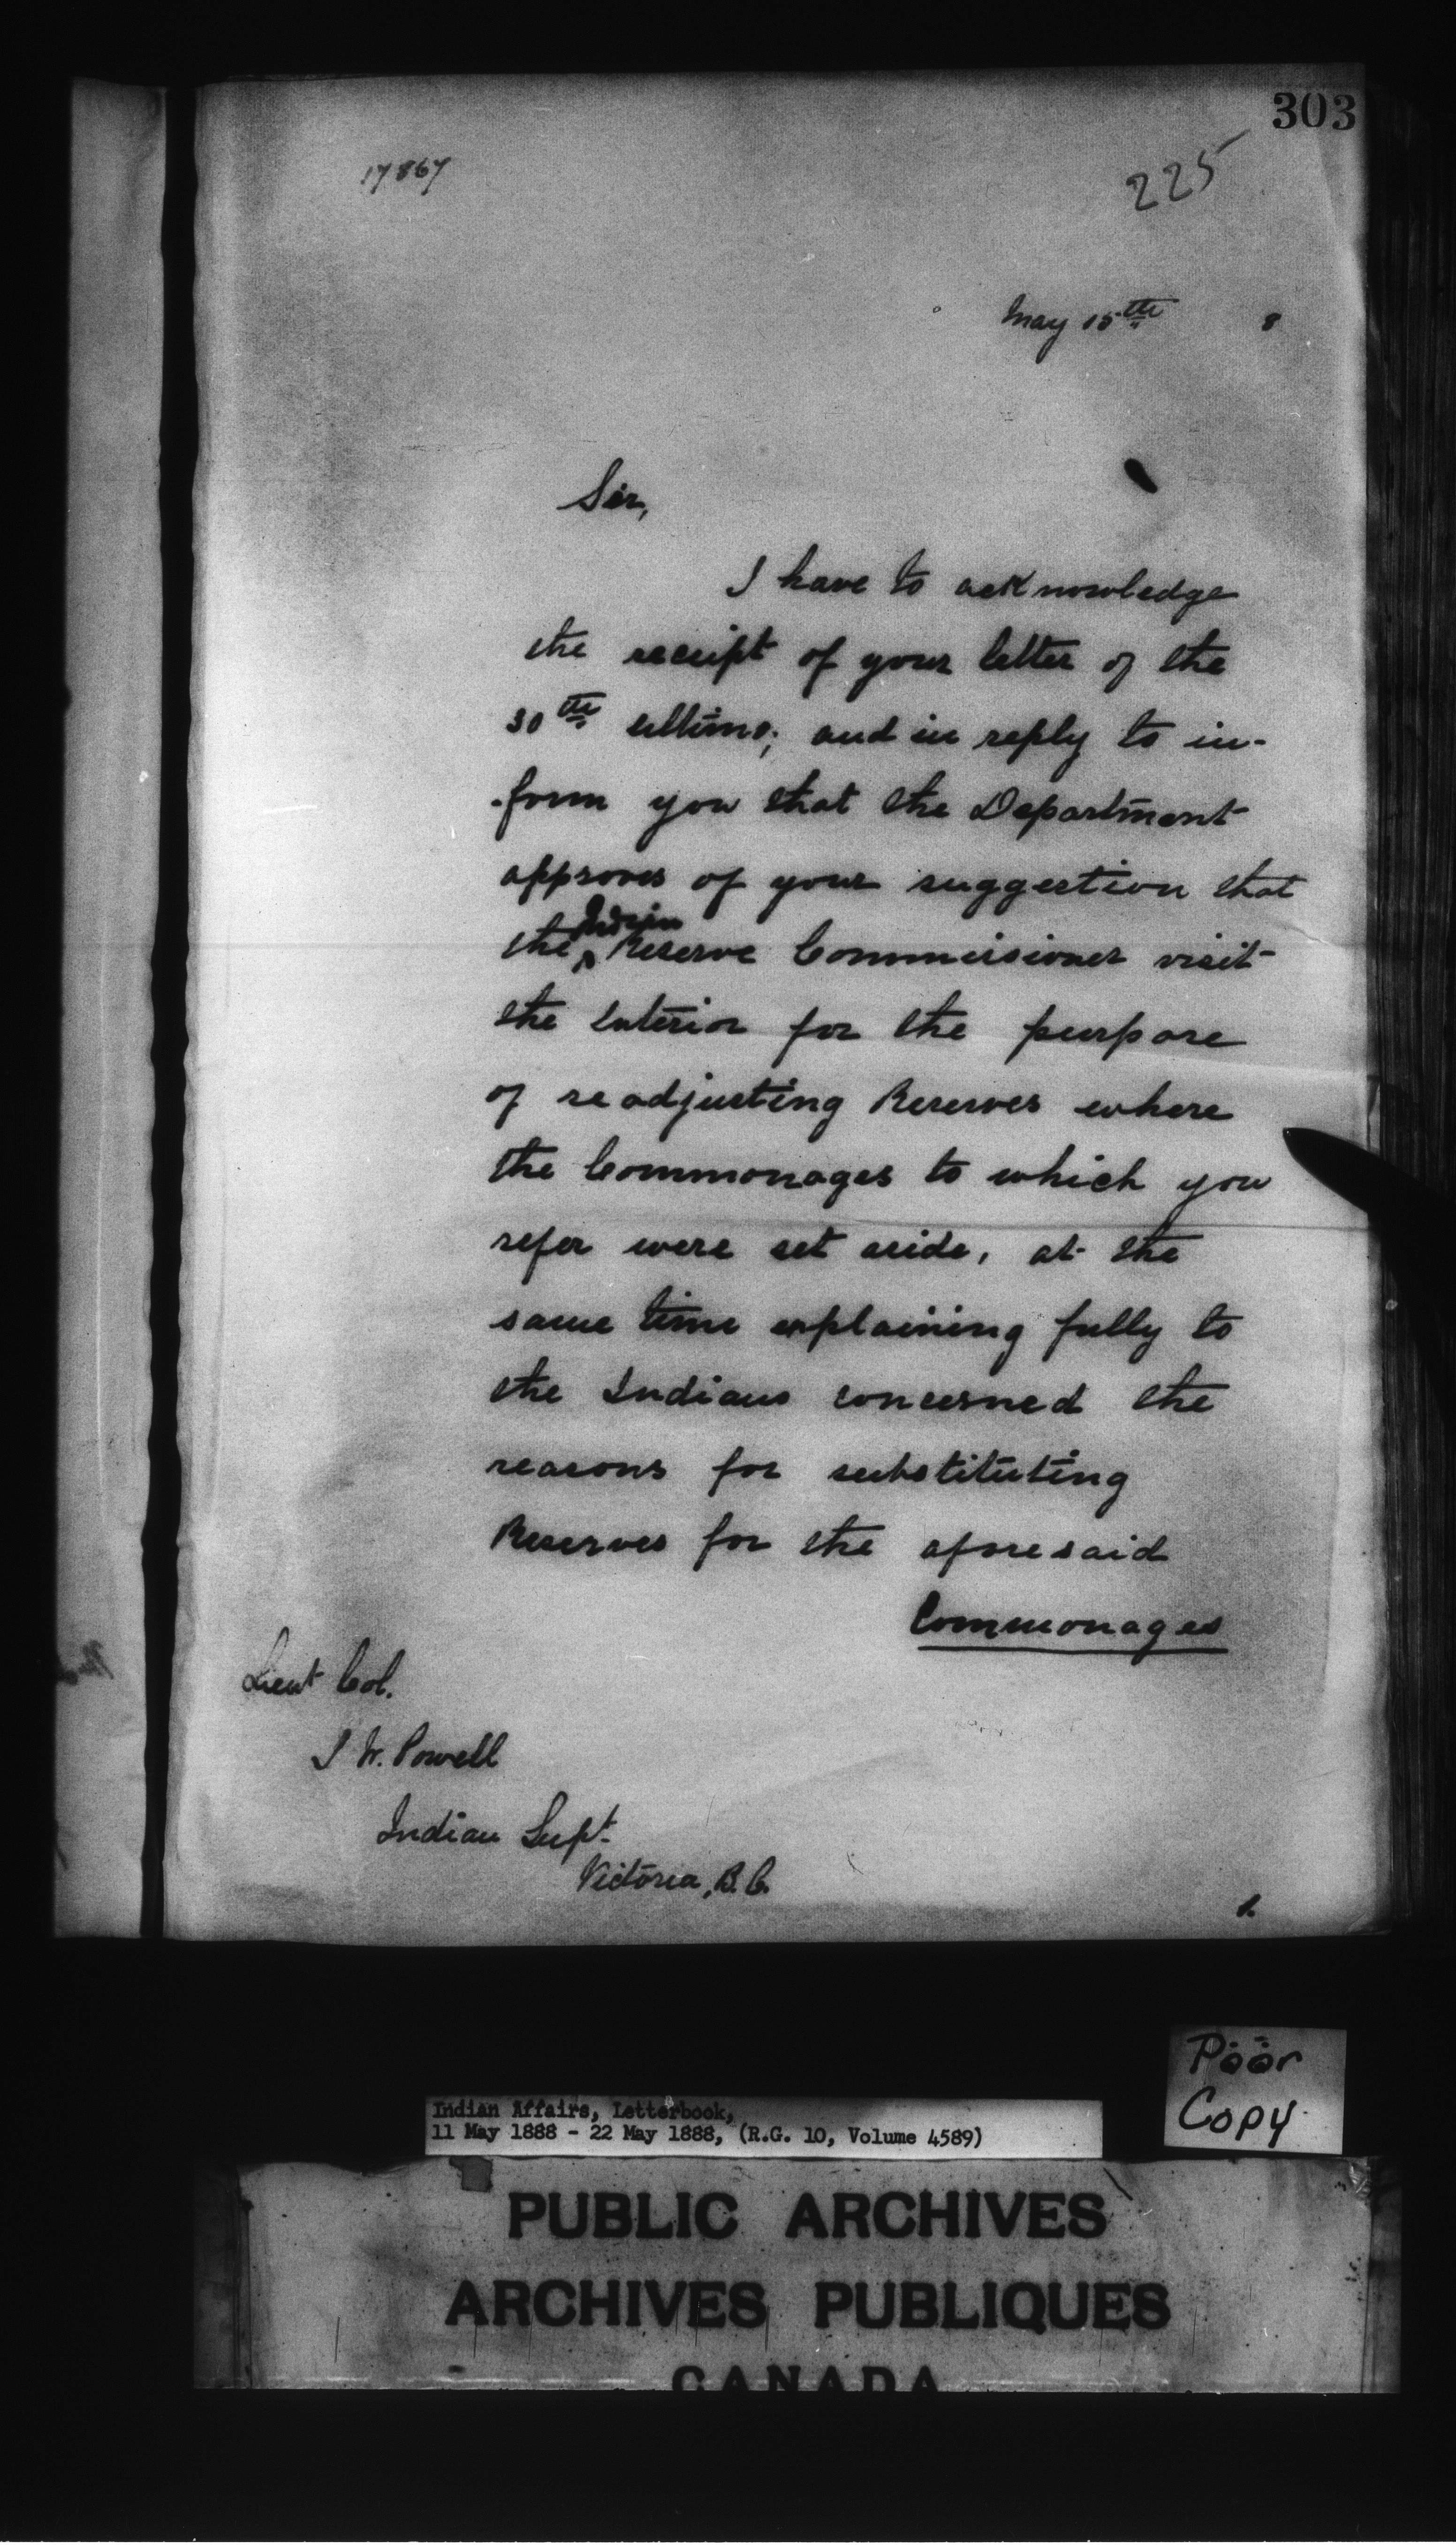 303
17867
225
May 15th 8
Sir,
I have to acknowledge
the receipt of your letter of the
30th ultimo; and in reply to in-
-form you that the Department
approves of your suggestion that
the Indian Reserve Commissioner visit
the Interior for the purpose
of readjusting Reserves where
the Commonages to which you
refer were set aside, at the
same time explaining fully to
the Indians concerned the
reasons for substituting
Reserves for the aforesaid
Commonages
Lieut Col.
I W. Powell
Indian Supt.
Victoria, B.C.
1.
Poor
Copy
Indian Affairs, Letterbook,
11 May 1888 - 22 May 1888, (R.G. 10, Volume 4589)
PUBLIC ARCHIVES
ARCHIVES PUBLIQUES
CANADA